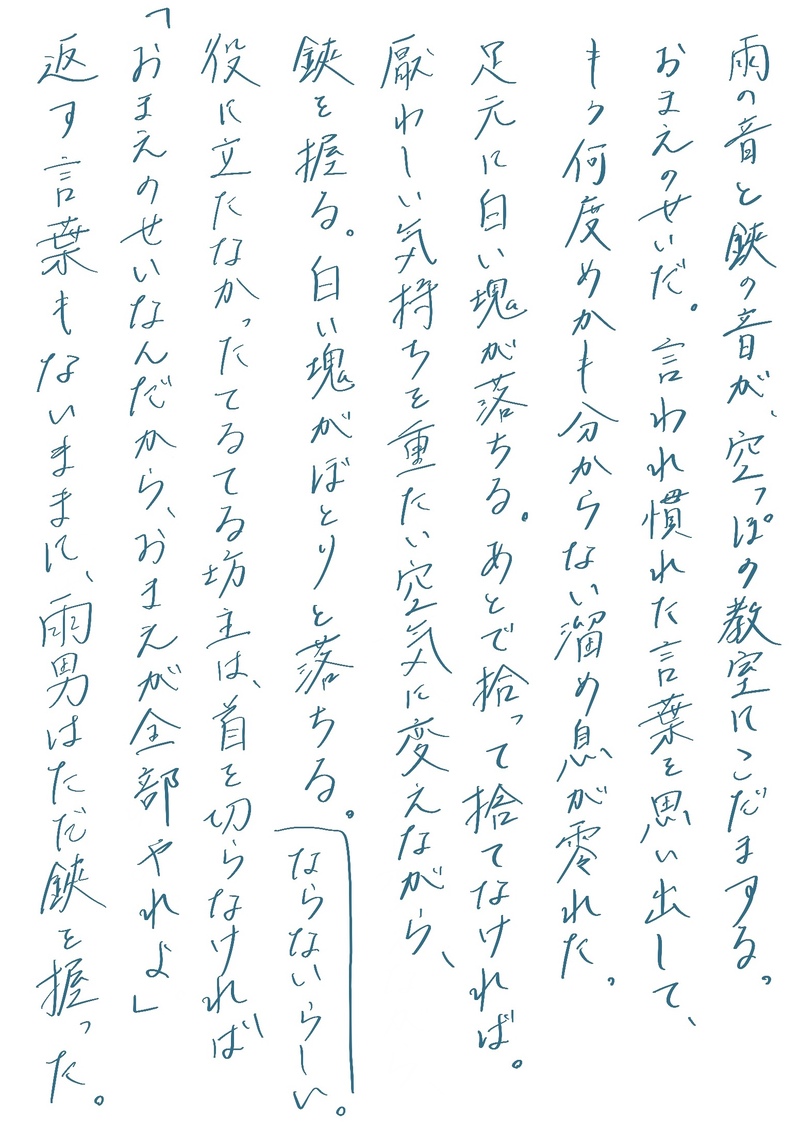 雨の音と鋏の音が、空っぽの教室にこだまする。
おまえのせいだ。言われ慣れた言葉を思い出して、
もう何度めかも分からない溜め息が零れた。
足元に白い塊が落ちる。あとで拾って捨てなければ。
厭わしい気持ちを重たい空気に変えながら、
鋏を握る。白い塊がぼとりと落ちる。
役に立たなかったてるてる坊主は、首を切らなければ
ならないらしい。
「おまえのせいなんだから、おまえが全部やれよ」
返す言葉もないままに、雨男はただ鋏を握った。